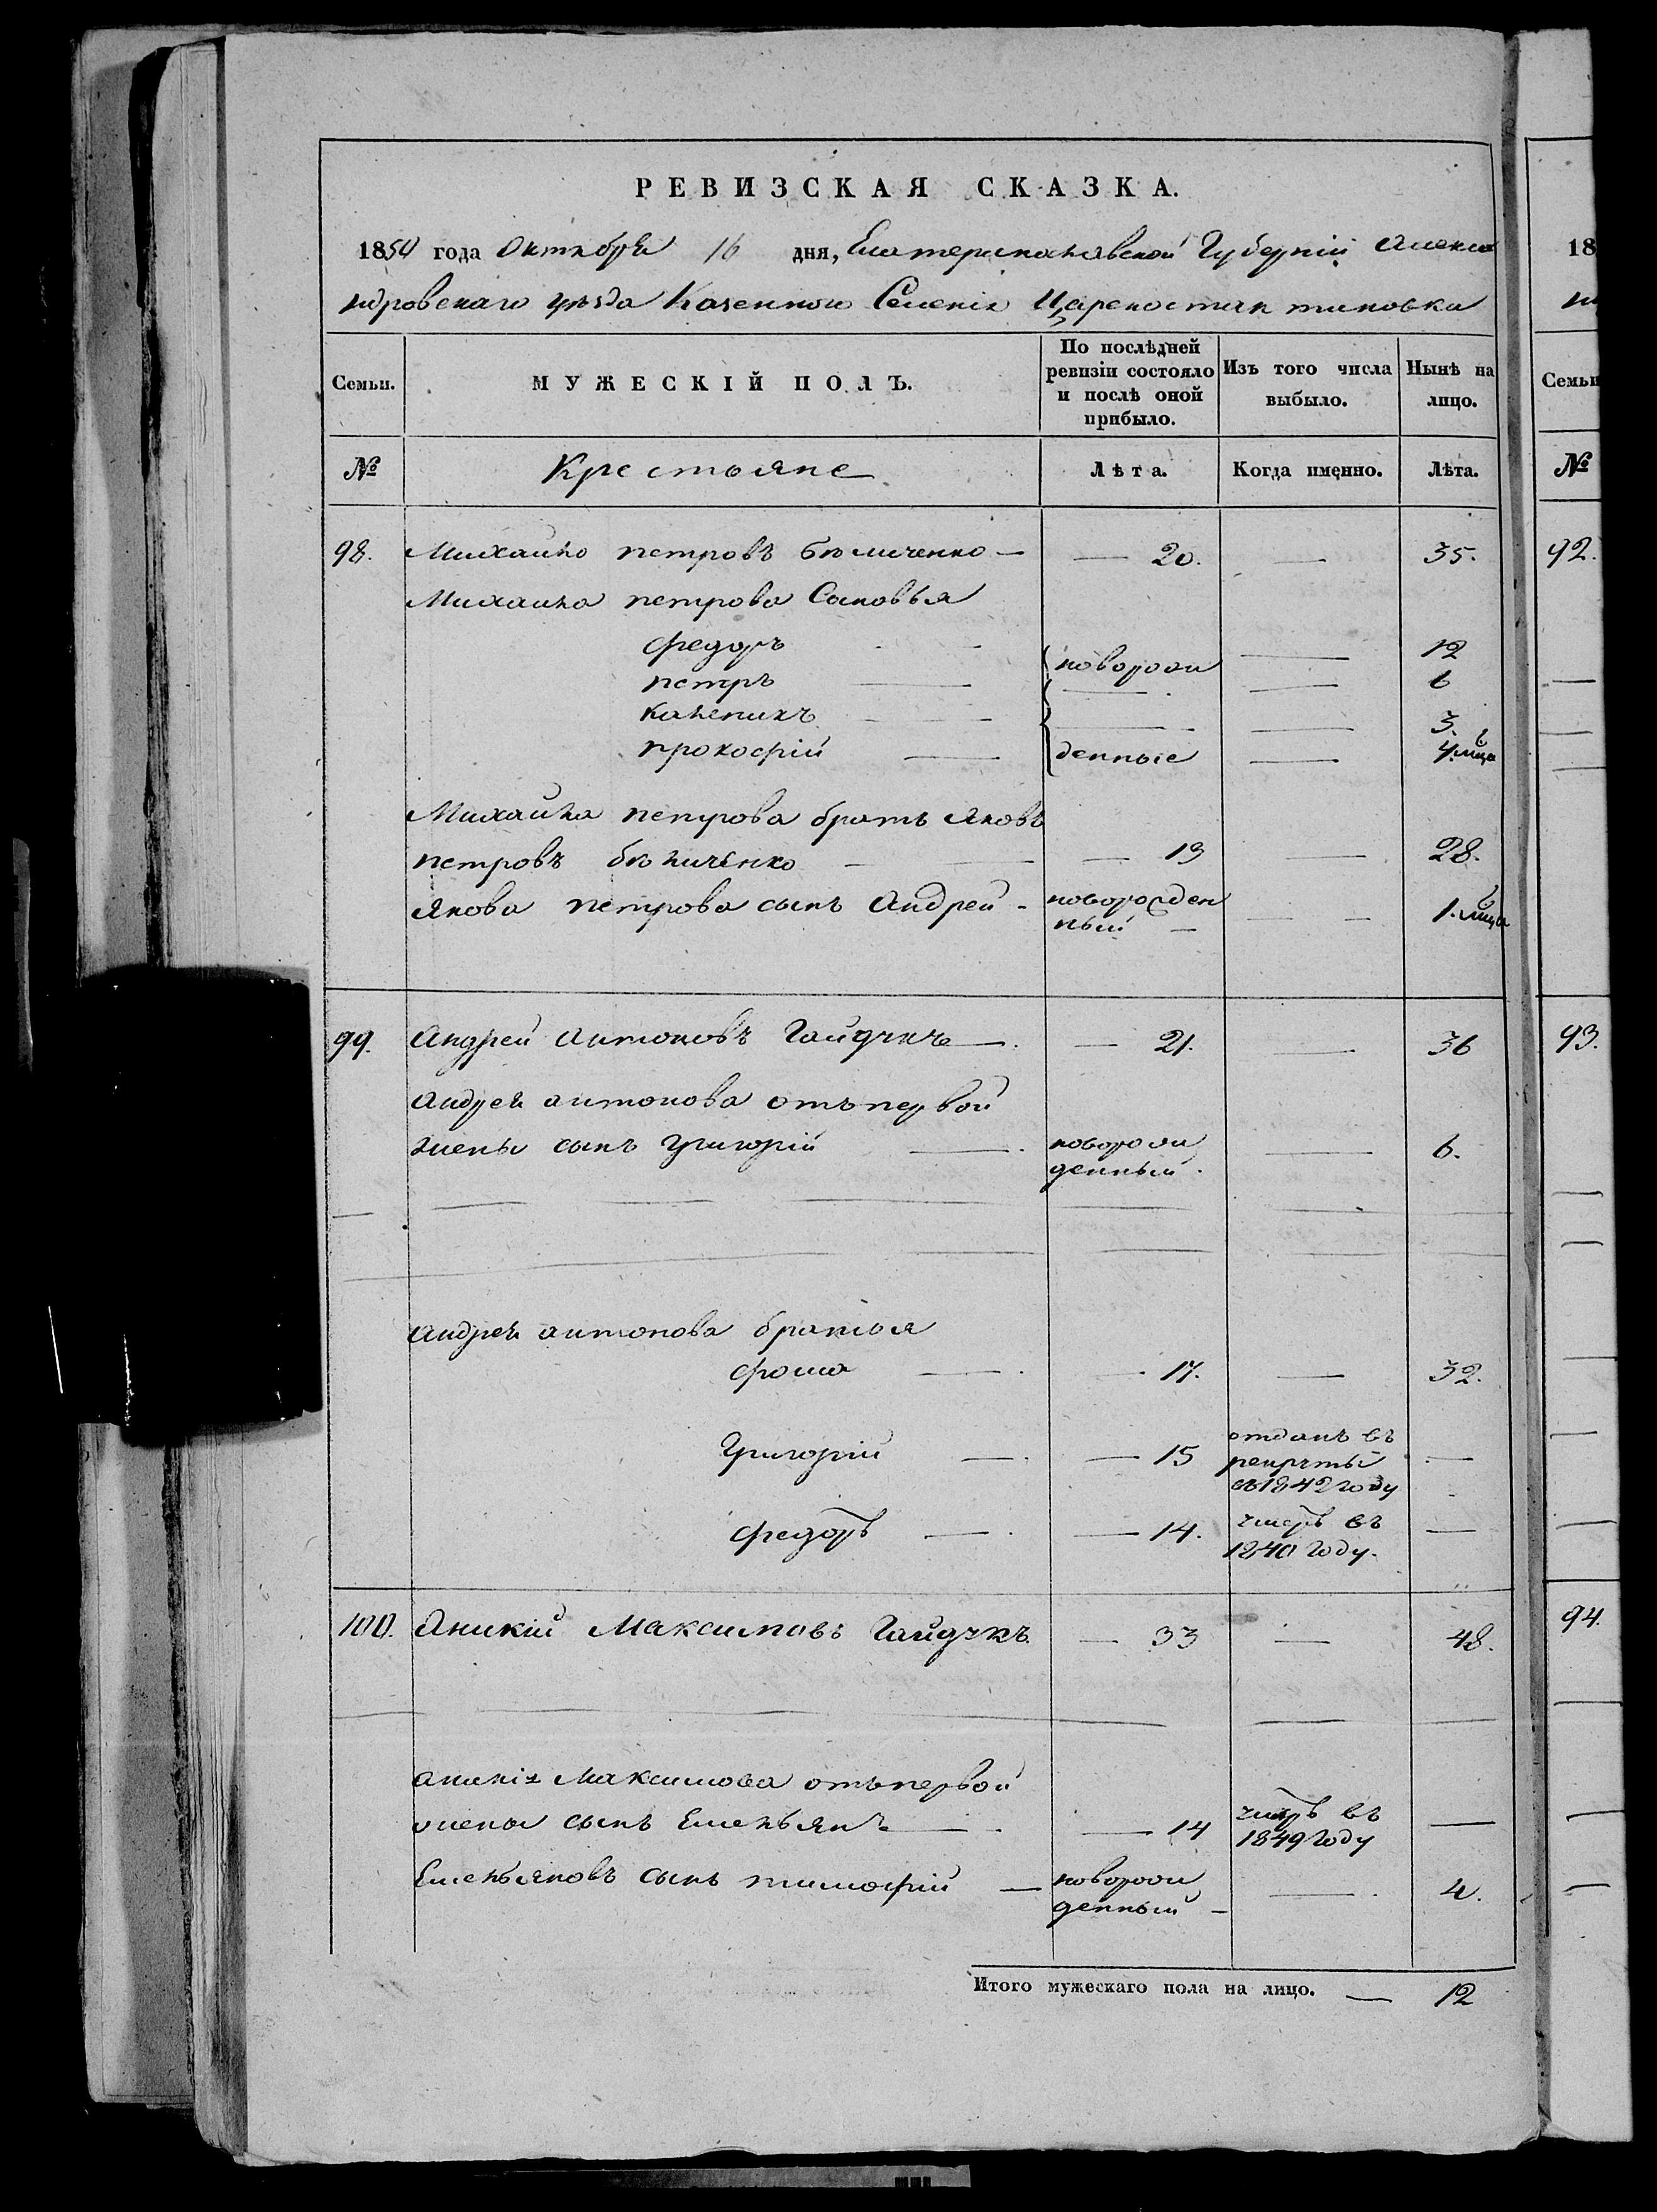 РЕВИЗСКАЯ СКАЗКА.
1850 года Октября 16 дня, Екатеринославской Губерніи Алекса
ндровскаго уѣзда Казенного Селенія Цареконстантиновка
Семьи. МУЖЕСКІЙ ПОЛЪ. По послѣдней ревизіи состояло и послѣ оной прибыло. Изъ того числа выбыло. Нынѣ на лицо.
№ Крестьяне Лѣта. Когда именно. Лѣта.
98. Михайло петровъ бѣличенко — — 20. — 35.
Михайла петрова Сыновья
федоръ новорож — 12
петръ — — — 6
каленикъ — — — 3.
прокофій — денные — 4. мца
Михайла петрова братъ Яковъ
петровъ бѣличенко — — 13 — 28.
Якова петрова сынъ Андрей - новорожден
ный — — 1. мца
99. Андрей Антоновъ Гайдукъ — — 21. — 36
Андрея антонова отъ первой
жены сынъ григорій — новорож
денный — 6.
Андрея антонова братья
фома — — 17. — 32.
Григорій — — 15 отданъ въ
рекруты
въ 1842 году —
федоръ — — 14. умеръ въ
1840 Году. —
100. Аникій Максимовъ Гайдукъ — 33 — 48.
аникія Максимова отъ первой
жены сынъ Емельянъ — — 14 умеръ въ
1849 Году —
Емельяновъ сынъ тимофій — новорож
денный — — 4.
Итого мужескаго пола на лицо. — 12
18
Семьи
№
92.
93.
94.